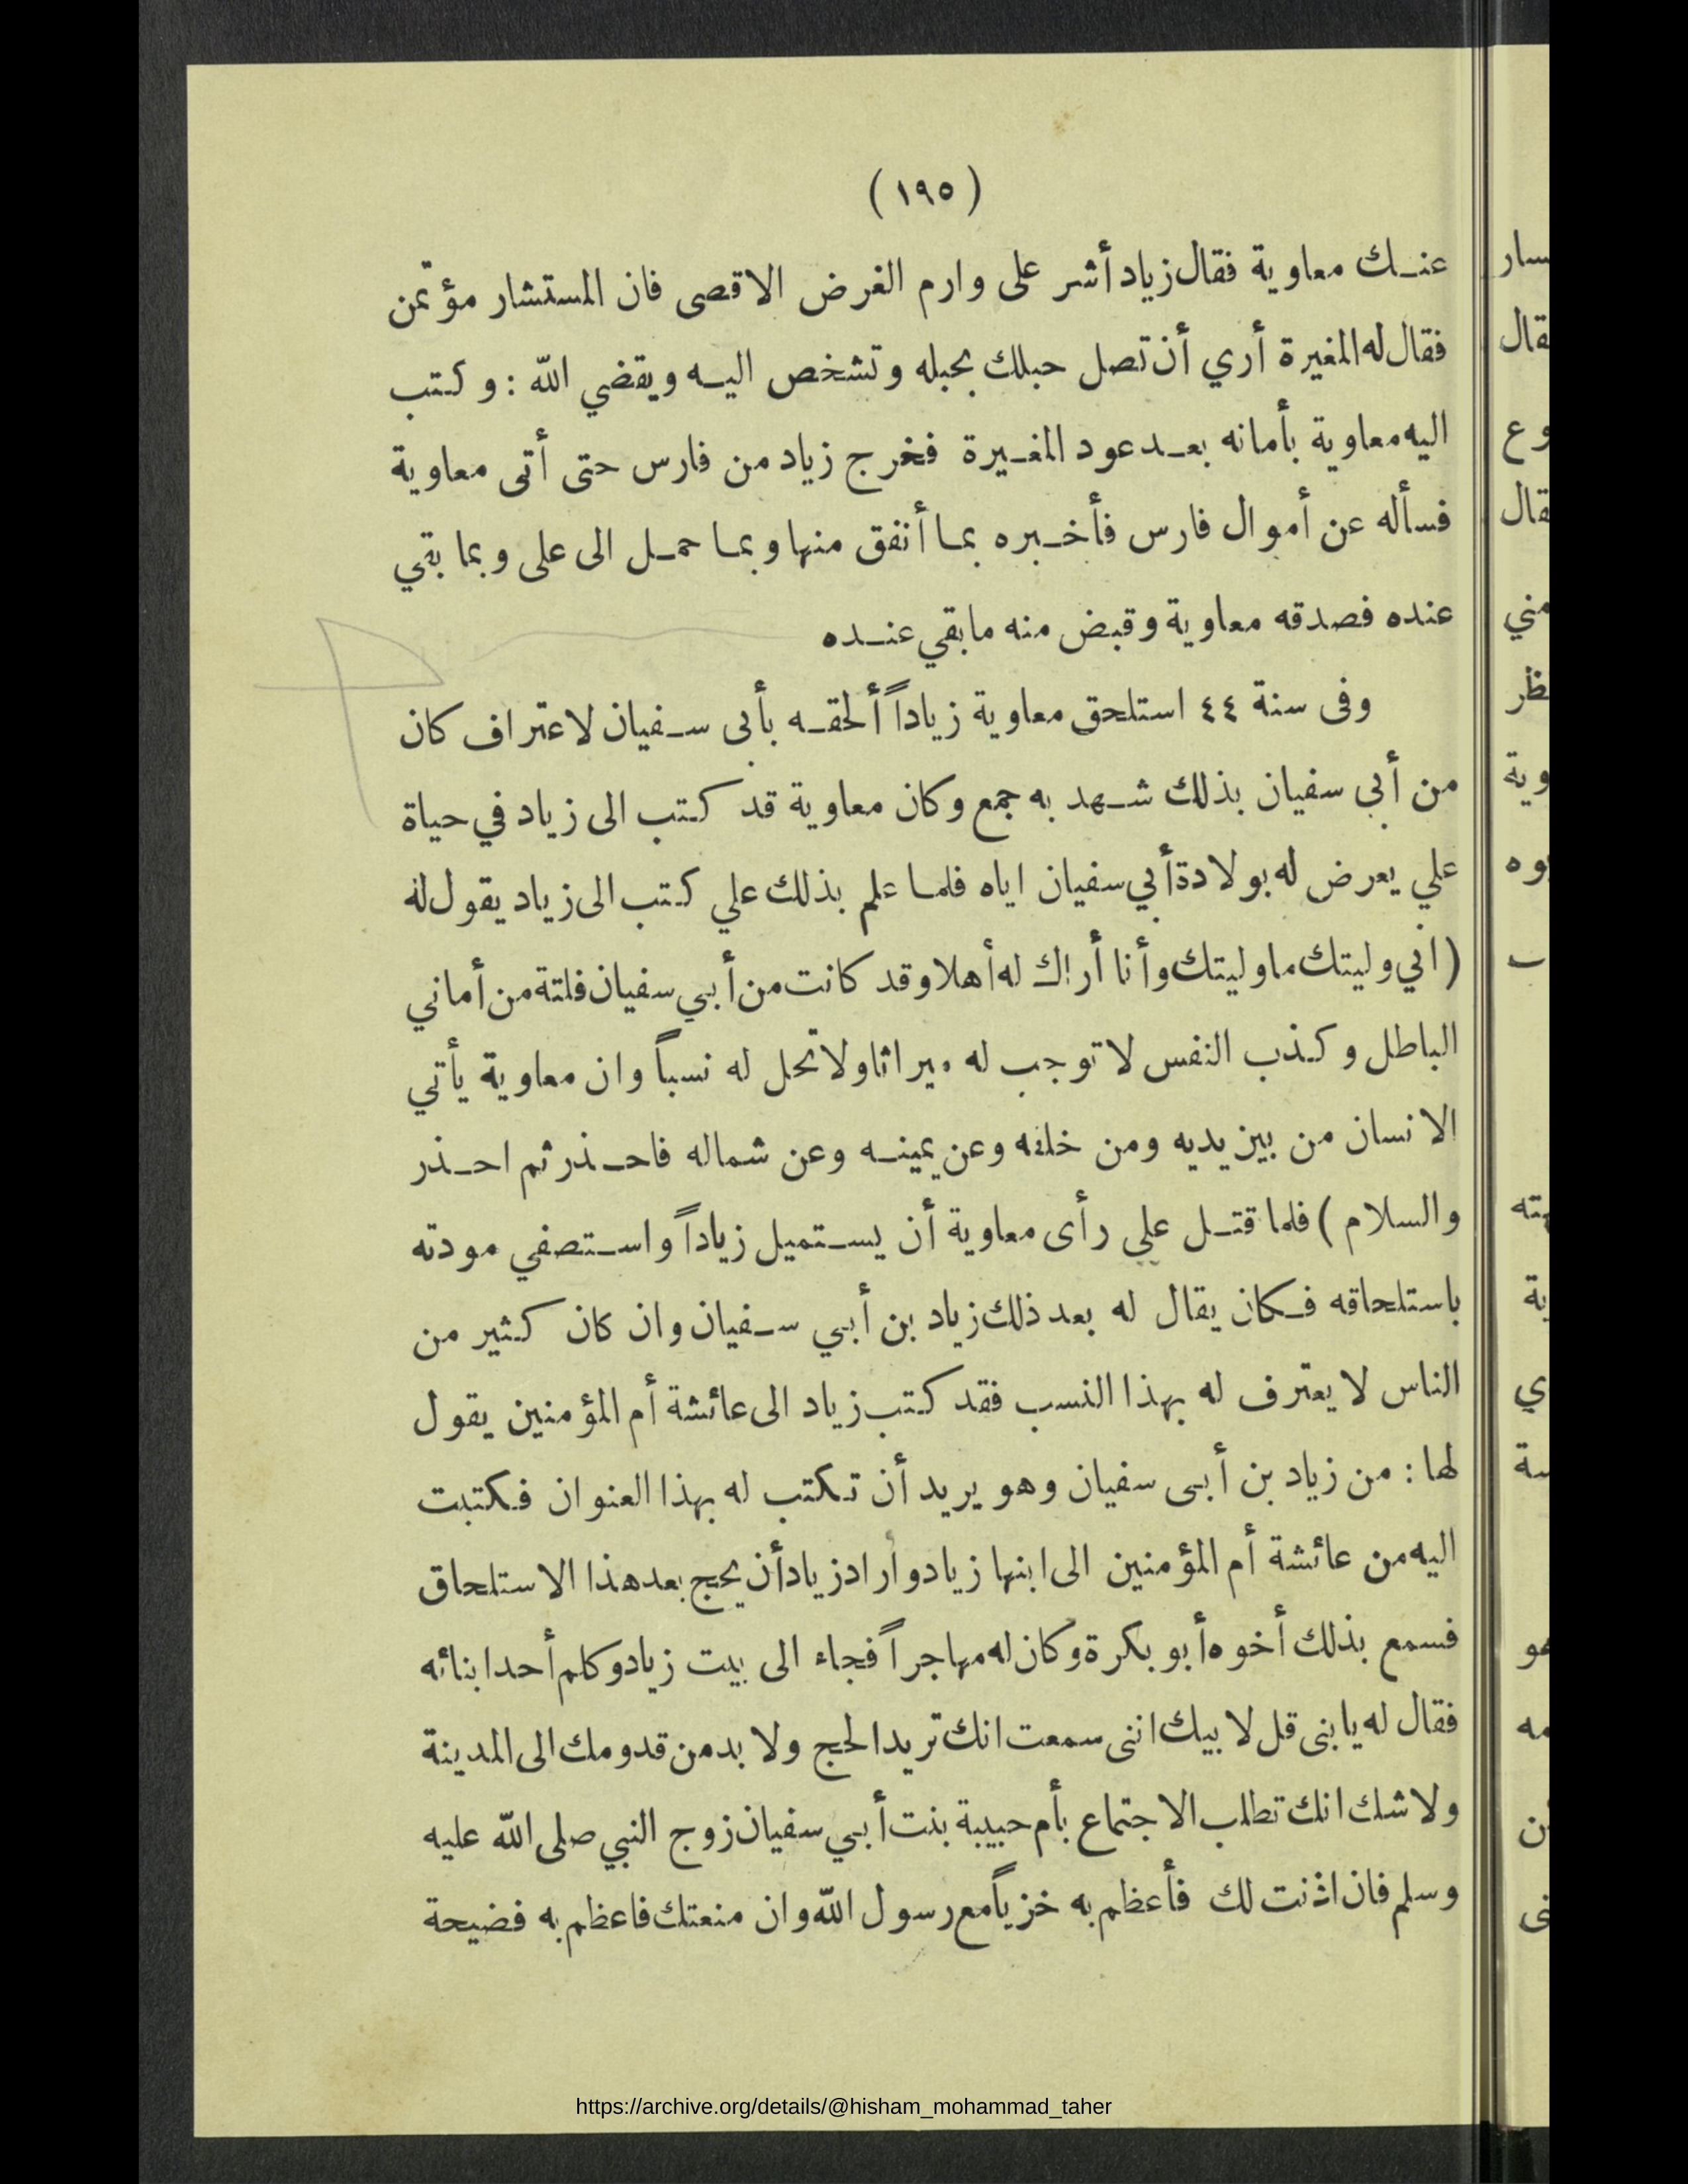 (١٩٥)
عنك معاوية فقال زياد أشر على وارم الغرض الاقصى فان المستشار مؤتمن
فقال له المغيرة أري أن تصل حبلك بحبله وتشخص اليه ويقضي الله : وكتب
اليه معاوية بأمانه بعد عود المغيرة فخرج زياد من فارس حتى أتى معاوية
فسأله عن أموال فارس فأخبره بما أنفق منها وبما حمل الى على وبما بقي
عنده فصدقه معاوية وقبض منه ما بقي عنده
وفى سنة ٤٤ استلحق معاوية زياداً ألحقه بأبى سفيان لاعتراف كان
من أبي سفيان بذلك شهد به جمع وكان معاوية قد كتب الى زياد في حياة
علي يعرض له بولادة أبي سفيان اياه فلما علم بذلك علي كتب الى زياد يقول له
( اني وليتك ما وليتك وأنا أراك له أهلا وقد كانت من أبي سفيان فلتة من أماني
الباطل وكذب النفس لا توجب له ميراثا ولا تحل له نسباً وان معاوية يأتي
الانسان من بين يديه ومن خلفه وعن يمينه وعن شماله فاحذر ثم احذر
والسلام ) فلما قتل علي رأى معاوية أن يستميل زياداً واستصفي مودته
باستلحاقه فكان يقال له بعد ذلك زياد بن أبي سفيان وان كان كثير من
الناس لا يعترف له بهذا النسب فقد كتب زياد الى عائشة أم المؤمنين يقول
لها : من زياد بن أبى سفيان وهو يريد أن تكتب له بهذا العنوان فكتبت
اليه من عائشة أم المؤمنين الى ابنها زياد وأراد زياد أن يحج بعد هذا الاستلحاق
فسمع بذلك أخوه أبو بكرة وكان له مهاجراً فجاء الى بيت زياد وكلم أحد ابنائه
فقال له يا بنى قل لابيك اننى سمعت انك تريد الحج ولا بد من قدومك الى المدينة
ولا شك انك تطلب الاجتماع بأم حبيبة بنت أبي سفيان زوج النبي صلى الله عليه
وسلم فان اذنت لك فأعظم به خزياً مع رسول الله وان منعتك فاعظم به فضيحة
https://archive.org/details/@hisham_mohammad_taher